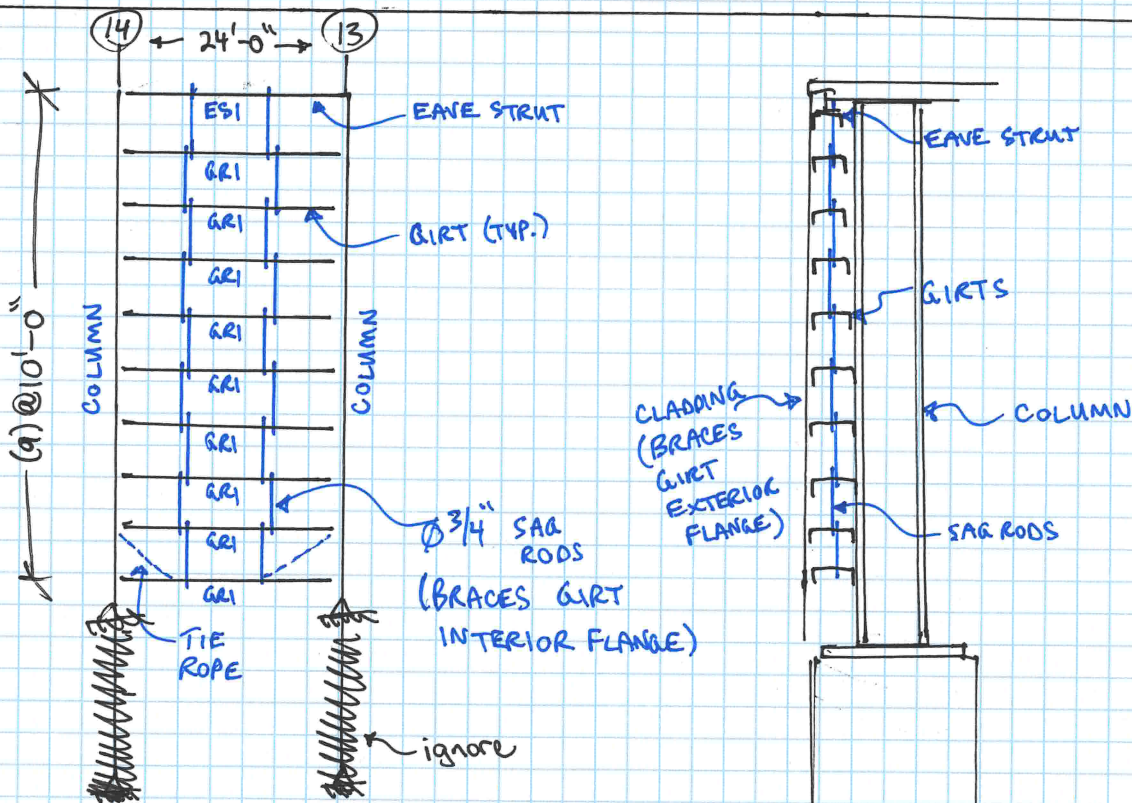 14
24'-0"
13
ES1
EAVE STRUT
GR1
GR1
GIRT (TYP.)
GR1
GR1
GR1
GR1
GR1
GR1
GR1
COLUMN
COLUMN
(9) @ 10'-0"
Ø 3/4" SAG
RODS
(BRACES GIRT
INTERIOR FLANGE)
TIE
ROPE
ignore
EAVE STRUT
GIRTS
CLADDING
(BRACES
GIRT
EXTERIOR
FLANGE)
COLUMN
SAG RODS